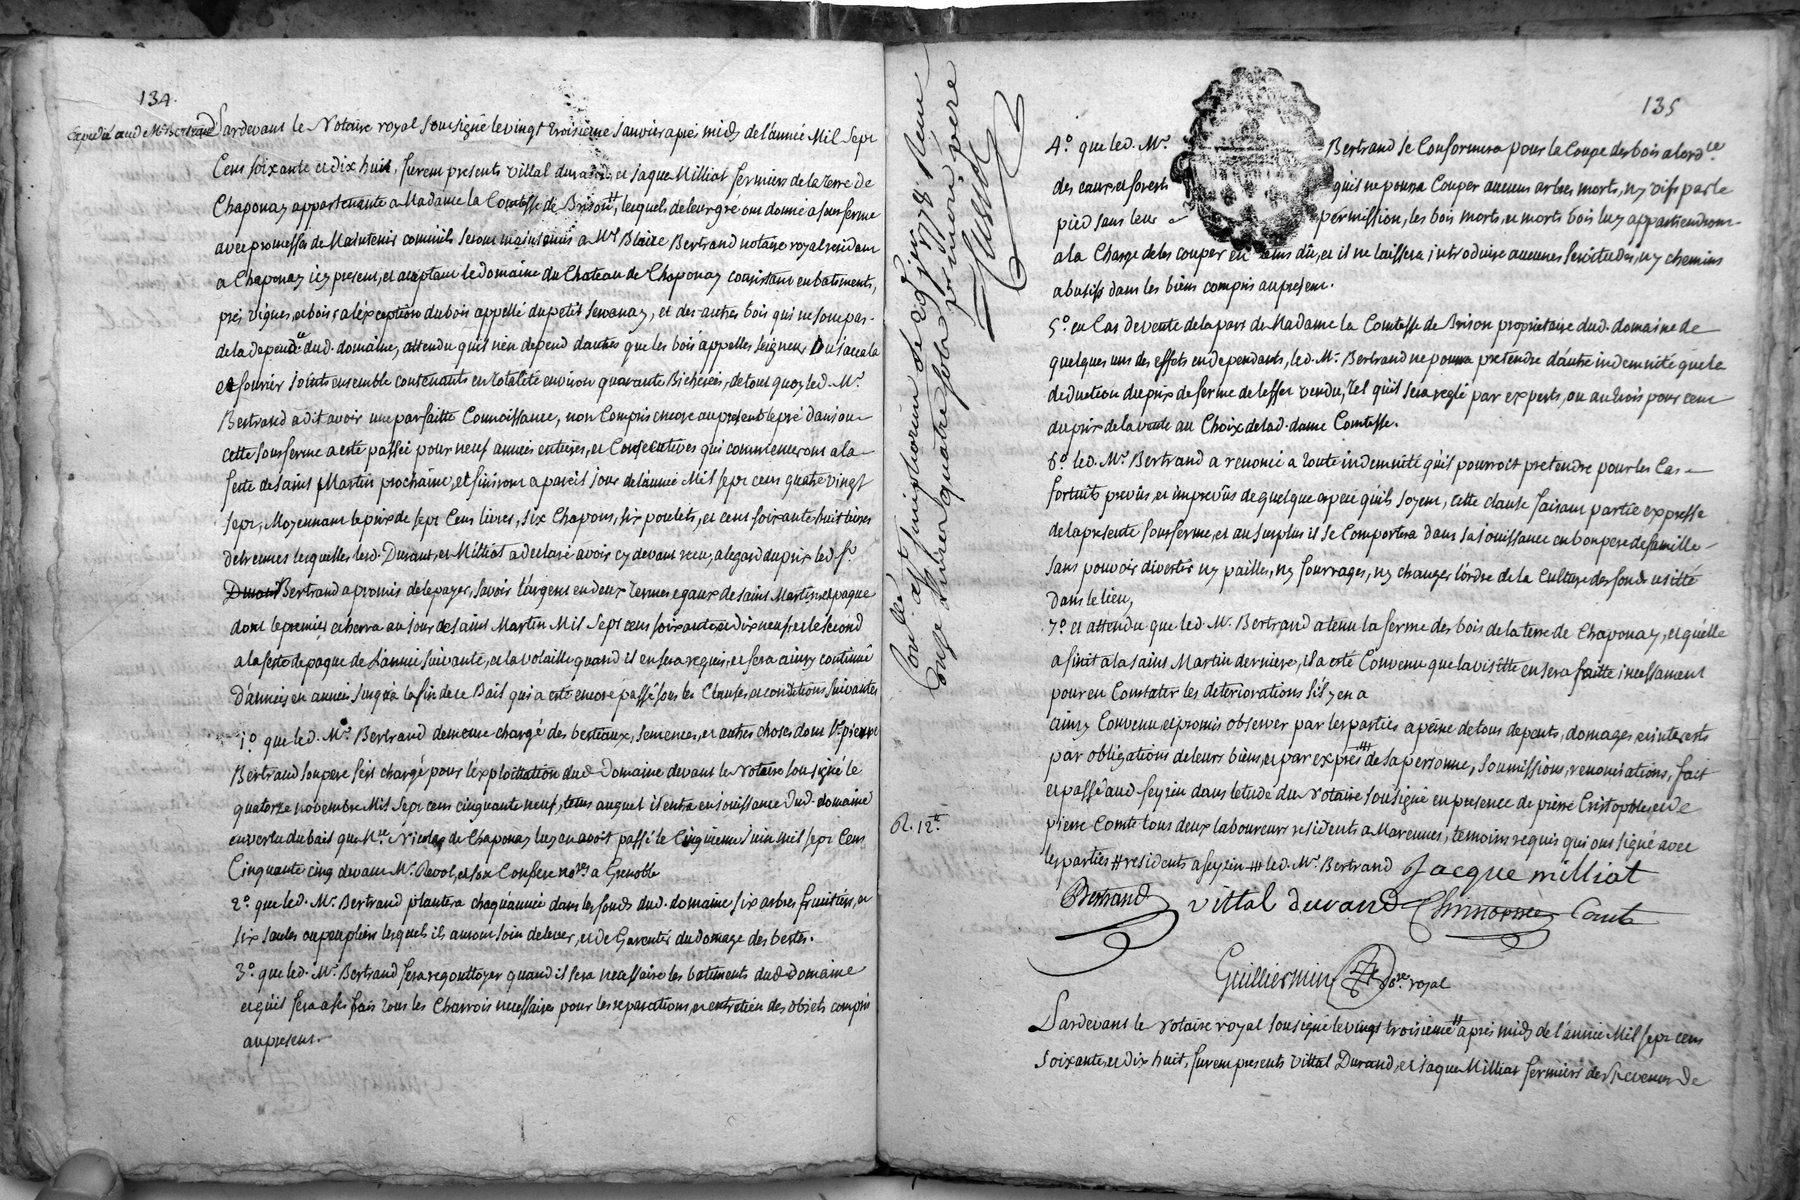 134.
expedié aud Mr Bertrand
Pardevant le Notaire royal soussigné le vingt troisieme Janvier après midy de l'année Mil Sept
Cent soixante et dix huit, furent presents Vittal durand, et Jaque Milliat fermiers de la terre de
Chaponay appartenante a Madame la Comtesse de Brison #, lesquels de leur gré ont donné a sous ferme
avec promesse de Maintenir commils seront maintenus a Mr Blaize Bertrand notaire royal residant
a Chaponay icy present, et acceptant le domaine du Chateau de Chaponay consistant en batiments,
prés vignes, et bois a l'éxception du bois appellé du petit sevenay, et des autres bois qui ne sont pas
de la dependce dud. domaine, attendu qu'il n'en depend d'autres que les bois appelles seigneur
joints ensemble contenants en totalité environ quarante Bicherées, de tout quoy led. Mr.
Bertrand a dit avoir une parfaitte Connoissance, non Compris encore au present le pré danjou
cette sous ferme a esté passée pour neuf années entieres, et Consecutives qui commenceront a la
feste de saint Martin prochaine, et finiront a pareil jour de l'année Mil sept cent quatre vingt
sept, Moyennant le prix de sept Cent livres, six Chapons, six poulets, et cent soixante huit livres
d'etrennes lesquelles lesd. Durand, et Milliat a declaré avoir cy devant receu, a legard du prix led. sr.
Durand Bertrand a promis de le payer, savoir l'argent en deux termes egaux de saint Martin, et paque
dont le premier echerra au jour de saint Martin Mil Sept cent soixante et dix neuf, et le second
a la feste de paque de l'année suivante, et la volaille quand il en sera requis, et sera ainsy continué
d'années en année jusqu'a la fin de ce Bail qui a esté encore passé sous les Clauses et conditions suivantes
1.o que led. Mr. Bertrand demeure chargé des besteaux, semences, et autres choses dont Sr. pierre
Bertrand son pere s'est chargé pour l'exploitation dud. Domaine devant le Notaire soussigné le
quatorze novembre Mil Sept cent cinquante neuf, tems auquel il entra en jouissance dud. domaine
en vertu du bail que Mre. Nicolas de Chaponay luy en avoit passé le Cinquieme Juin mil sept Cent
Cinquante cinq devant Mr. Revol, et son Confrere nores a Grenoble
2.o que led. Mr. Bertrand plantera chaqu'année dans les fonds dud. domaine six arbres fruitiers, et
six saules ou peupliers lesquels il auront soin d'elever, et de Garentir du domage des bestes.
3.o que led. Mr. Bertrand fera regouttoyer quand il sera necessaire les batiments dud. domaine
et qu'il fera a ses frais tous les Charrois necessaires pour les reparations, et entretien des objets compris
au present.
Conllé et a st simphorien le 29 janvier 1778 Reçu
onze livres quatre sols primata pere
Cusset
R. 12tt
135
4.o que led. Mr. Bertrand se Conformera pour la Coupe des bois a l'ordce
des eaux, et forests qu'il ne pourra Couper aucuns arbres morts, ny vifs par le
pied sans leur permission, les bois morts, et morts bois luy appartiendront
a la Charge de les couper en tems dû, et il ne laissera introduire aucunes servitudes, ny chemins
abusifs dans les biens compris au present.
5.o en Cas de vente de la part de Madame la Comtesse de Brison proprietaire dud. domaine de
quelques uns des effets en dependants, led. Mr. Bertrand ne pourra pretendre d'autre indemnité que la
deduction du prix de ferme de l'effet vendu, tel qu'il sera reglé par experts, ou au trois pour cent
du prix de la vente au Choix de lad. dame Comtesse.
6.o led. Mr. Bertrand a renoncé a toute indemnité qu'il pourroit pretendre pour les Cas
fortuits prevûs, et imprevûs de quelque espece qu'ils soyent, cette clause faisant partie expresse
de la presente sous ferme, et au surplus il se Comportera dans sa jouissance en bon pere de famille
sans pouvoir divertir ny pailles, ny fourrages, ny changer l'ordre de la Culture des fonds usitté
dans le lieu,
7.o et attendu que led. Mr. Bertrand a tenu la ferme des bois de la terre de Chaponay, et qu'elle
a finit a la saint Martin derniere, il a esté Convenu que la visitte en sera faitte incessament
pour en Constater les deteriorations s'il y en a
ainsy Convenu, et promis observer par les parties a peine de tous depents, domages et interests
par obligations de leurs biens, et par exprès ### de sa personne, soumissions, renonciations, fait
et passé aud. feyzin dans l'etude du Notaire soussigné en presence de pierre Cristophle, et de
pierre Comte tous deux laboureurs residents a Marennes, temoins requis qui ont signé avec
les parties # residents a feyzin ### led. Mr. Bertrand Jacque milliat
Bertrand vittal durand Christophle Comte
Guilliermin nore. royal
Pardevant le Notaire royal soussigné le vingt troisieme # après midy de l'année Mil sept cent
soixante, et dix huit, furent presents Vittal Durand, et Jaque Milliat fermiers des revenus de